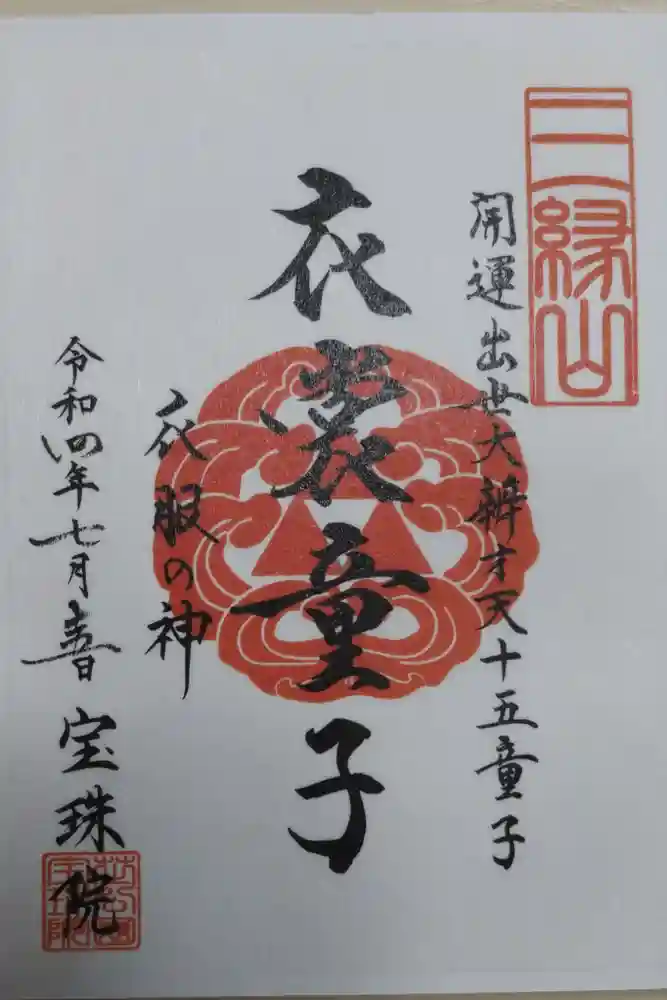 三縁山
開運出世大辨才天十五童子
衣裳童子
衣服の神
令和四年七月吉日
宝珠院